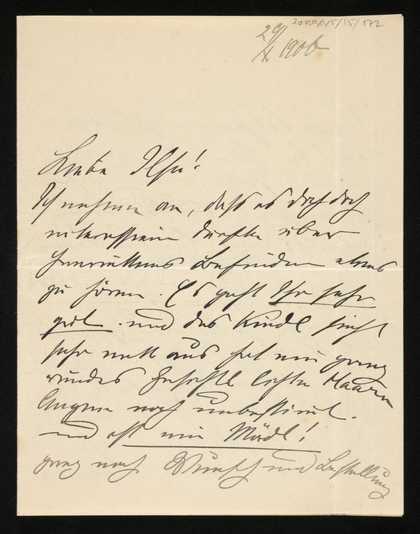 29/X 1906
Liebe Ilse!
Ich nehme an, dass es dich doch
interessieren dürfte über
Henriettens Befinden etwas
zu hören. Es geht Ihr sehr
gut. und das Kindl sieht
sehr nett aus hat ein ganz
rundes Gesichtl lichte Haare
Augen noch unbestimt.
und ist ein Mädl!
ganz nach Wunsch und Bestellung